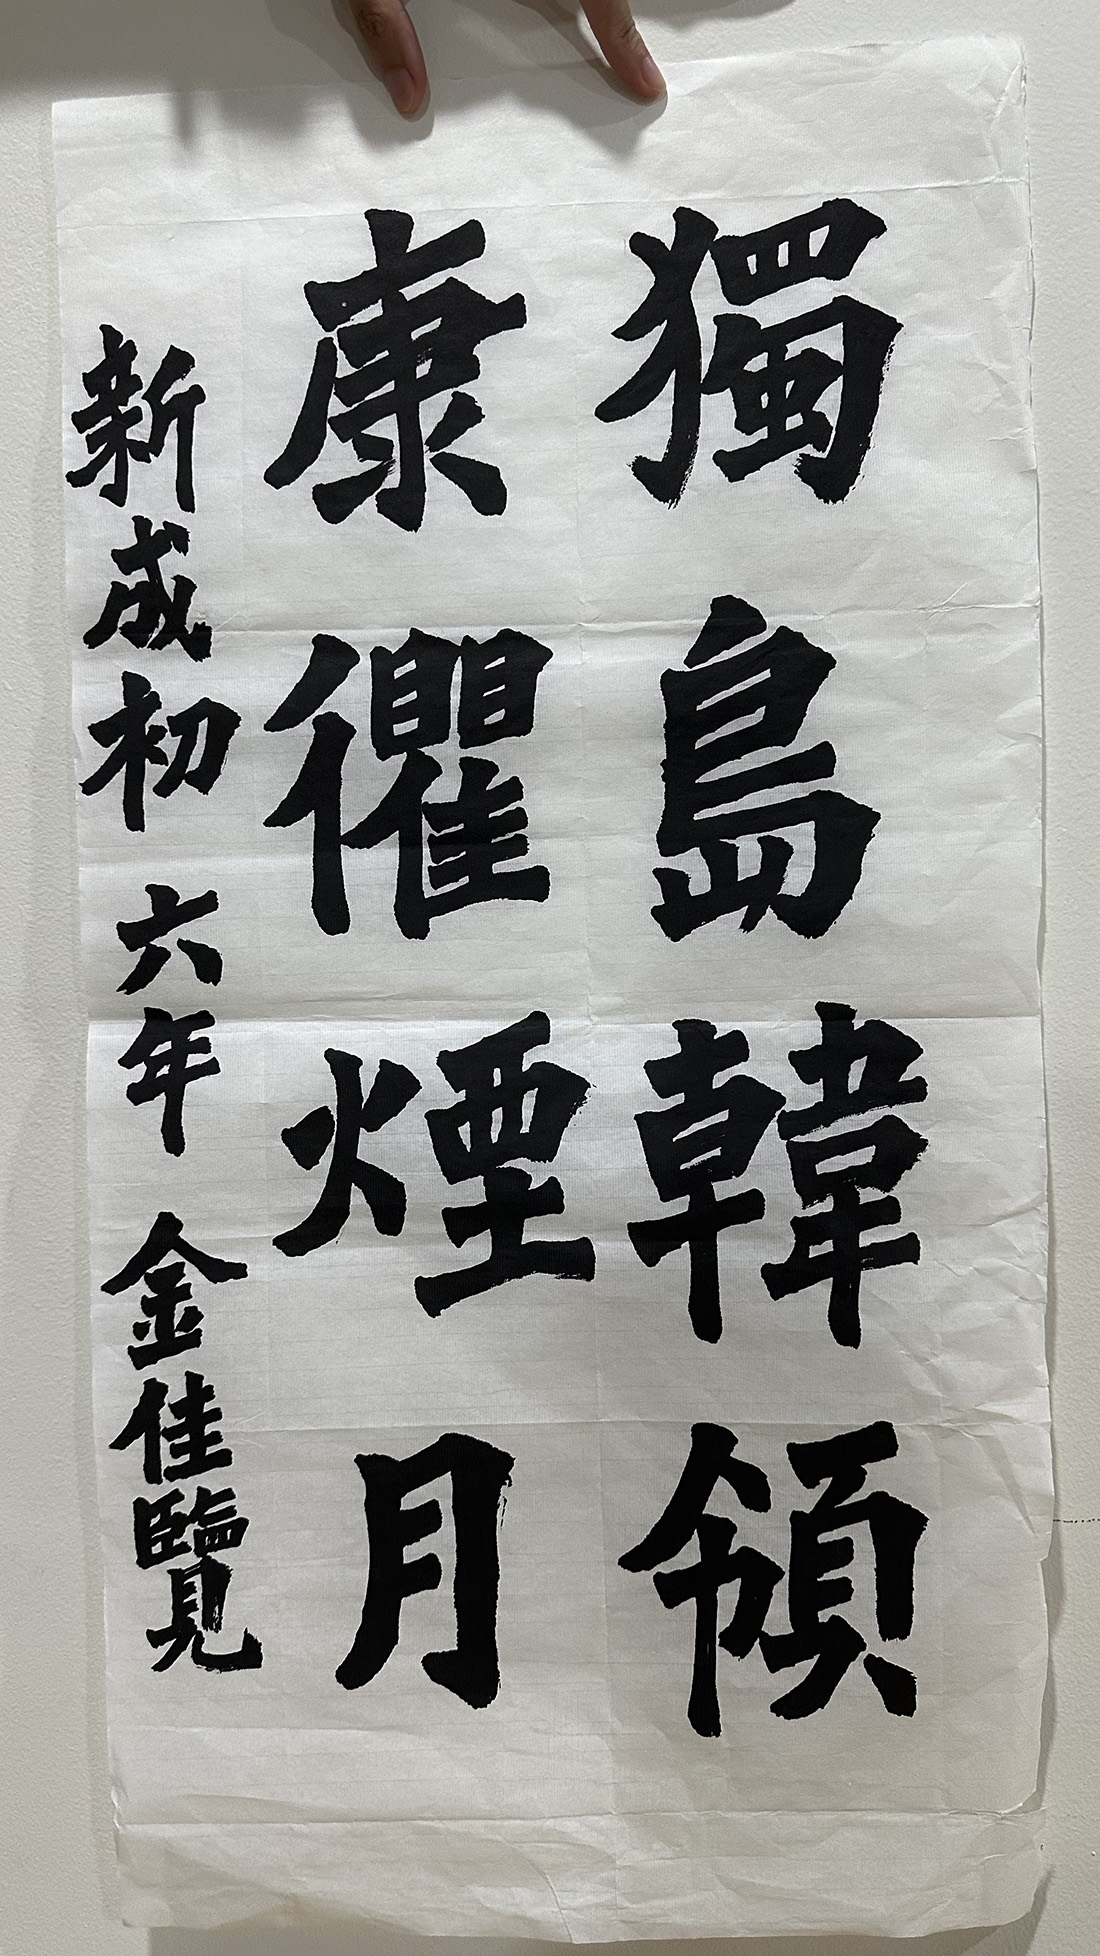 獨島韓領
康衢煙月
新成初 六年 金佳覽